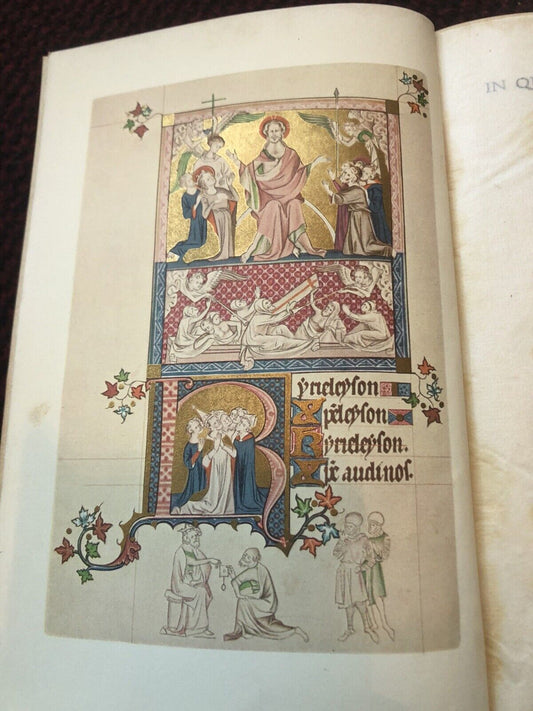 Kyrieleyson
Xp̄eleyson
Kyrieleyson.
Xp̄e audinos.
IN